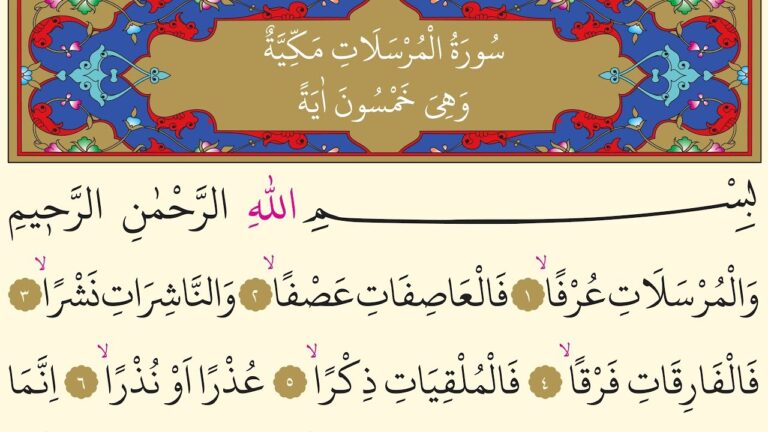 سُورَةُ الْمُرْسَلَاتِ مَكِّيَّةٌ
وَهِىَ خَمْسُونَ اٰيَةً
بِسْمِ اللّٰهِ الرَّحْمٰنِ الرَّح۪يمِ
وَالْمُرْسَلَاتِ عُرْفًاۙ ﴿١﴾ فَالْعَاصِفَاتِ عَصْفًاۙ ﴿٢﴾ وَالنَّاشِرَاتِ نَشْرًاۙ ﴿٣﴾
فَالْفَارِقَاتِ فَرْقًاۙ ﴿٤﴾ فَالْمُلْقِيَاتِ ذِكْرًاۙ ﴿٥﴾ عُذْرًا اَوْ نُذْرًاۙ ﴿٦﴾ اِنَّمَا